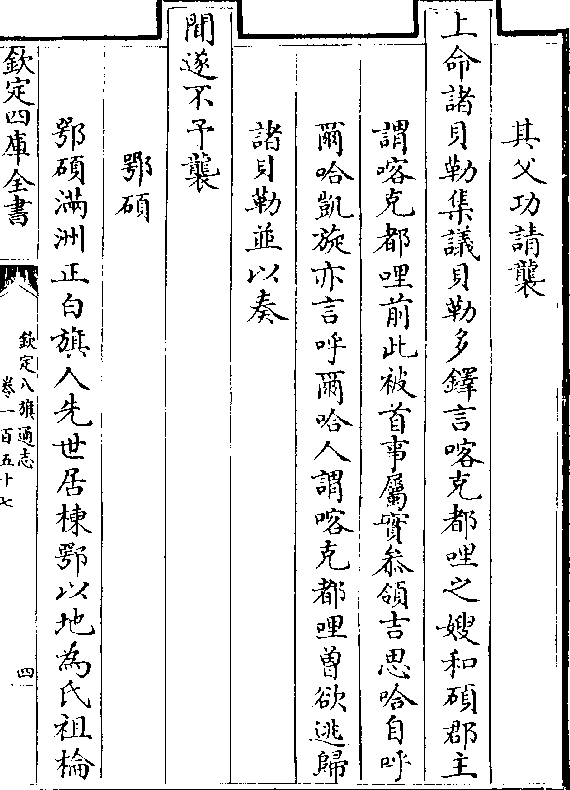 其父功請襲
上命諸貝勒集議貝勒多鐸言喀克都哩之嫂和碩郡主
謂喀克都哩前此被首事屬實叅領吉思哈自呼
爾哈凱旋亦言呼爾哈人謂喀克都哩曾欲逃歸
諸貝勒並以奏
聞遂不予襲
鄂碩
鄂碩滿洲正白旗人先世居棟鄂以地為氏祖棆
欽定四庫全書
欽定八旗通志
卷一百五十七
四